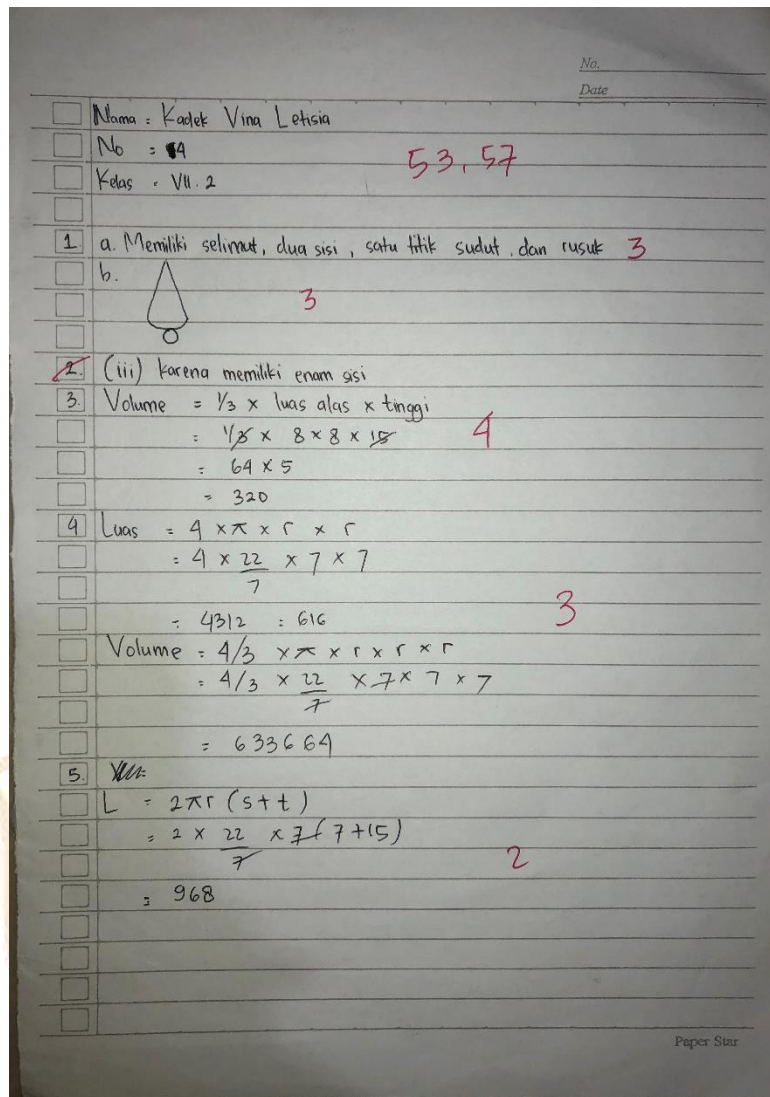 No.
Date
Nama : Kadek Vina Letisia
No : 4
53,57
Kelas : VII.2
1. a. Memiliki selimut, dua sisi, satu titik sudut, dan rusuk 3
b.
3
2. (iii) karena memiliki enam sisi
3. Volume = 1/3 x luas alas x tinggi
= 1/3 x 8 x 8 x 15 4
= 64 x 5
= 320
4 Luas = 4 x π x r x r
= 4 x 22/7 x 7 x 7
= 4312 : 616 3
Volume = 4/3 x π x r x r x r
= 4/3 x 22/7 x 7 x 7 x 7
= 633664
5.
L = 2πr (s+t)
= 2 x 22/7 x 7 (7+15)
2
= 968
Paper Star